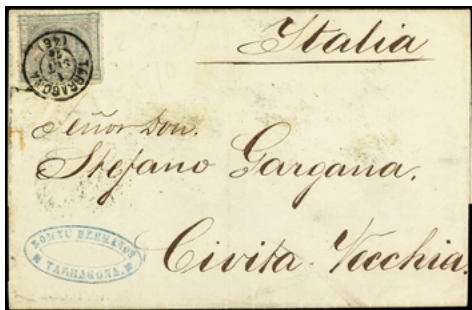 Italia
TARRAGONA
(46)
Señor Don.
Stefano Gargana.
Civita-Vecchia.
HERMANOS
TARRAGONA.